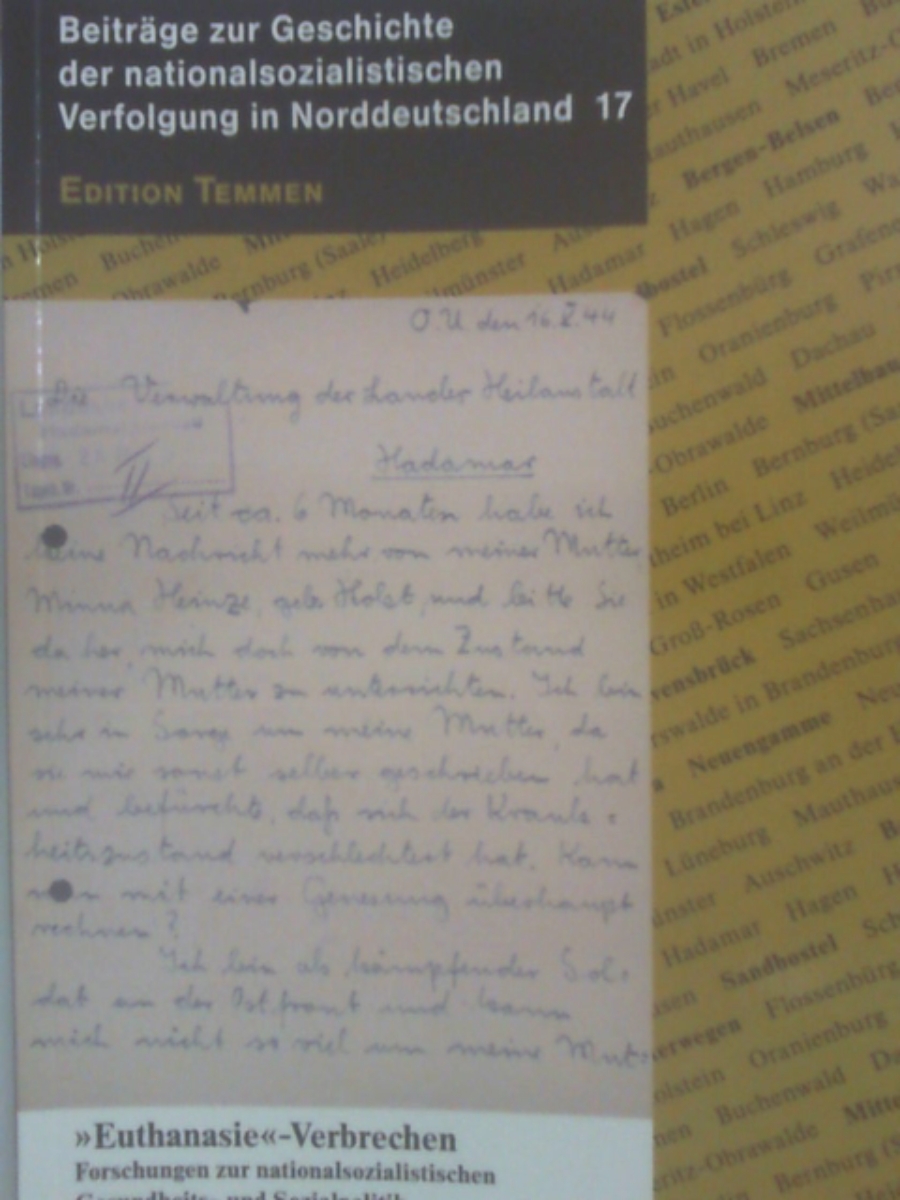 Beiträge zur Geschichte
der nationalsozialistischen
Verfolgung in Norddeutschland 17
EDITION TEMMEN
O.U den 16.X.44
Die Verwaltung der Landes Heilanstalt
Hadamar
Seit ca. 6 Monaten habe ich
keine Nachricht mehr von meiner Mutter
Minna Heinze, geb. Holst, und bitte Sie
daher, mich doch von dem Zustand
meiner Mutter zu unterrichten. Ich bin
sehr in Sorge um meine Mutter, da
sie mir sonst selber geschrieben hat
und befürchte, daß sich der Krank-
heitszustand verschlechtert hat. Kann
man mit einer Genesung überhaupt
rechnen?
Ich bin als kämpfender Sol-
dat an der Ostfront und kann
mich nicht so viel um meine Mut-
»Euthanasie«-Verbrechen
Forschungen zur nationalsozialistischen
Gesundheits- und Sozialpolitik
adt in Holstein
Havel Bremen
Mauthausen Meseritz-O
Bergen-Belsen Be
Hadamar Hagen Hamburg
bostel Schleswig Wa
Flossenbürg Grafene
in Oranienburg Pir
Buchenwald Dachau
-Obrawalde Mittelbau
Berlin Bernburg (Saa
theim bei Linz Heidel
in Westfalen Weilmü
Groß-Rosen Gusen
vensbrück Sachsenha
rswalde in Brandenburg
Neuengamme Neu
Brandenburg an der
Lüneburg Mauthaus
ünster Auschwitz
Hadamar Hagen
usen Sandbostel Sch
erwegen Flossenbürg
olstein Oranienburg
men Buchenwald Da
ritz-Obrawalde Mitte
Bernburg (S
Bremen Buchen
Obrawalde
Bernburg (Saale)
Heidelberg
lmünster